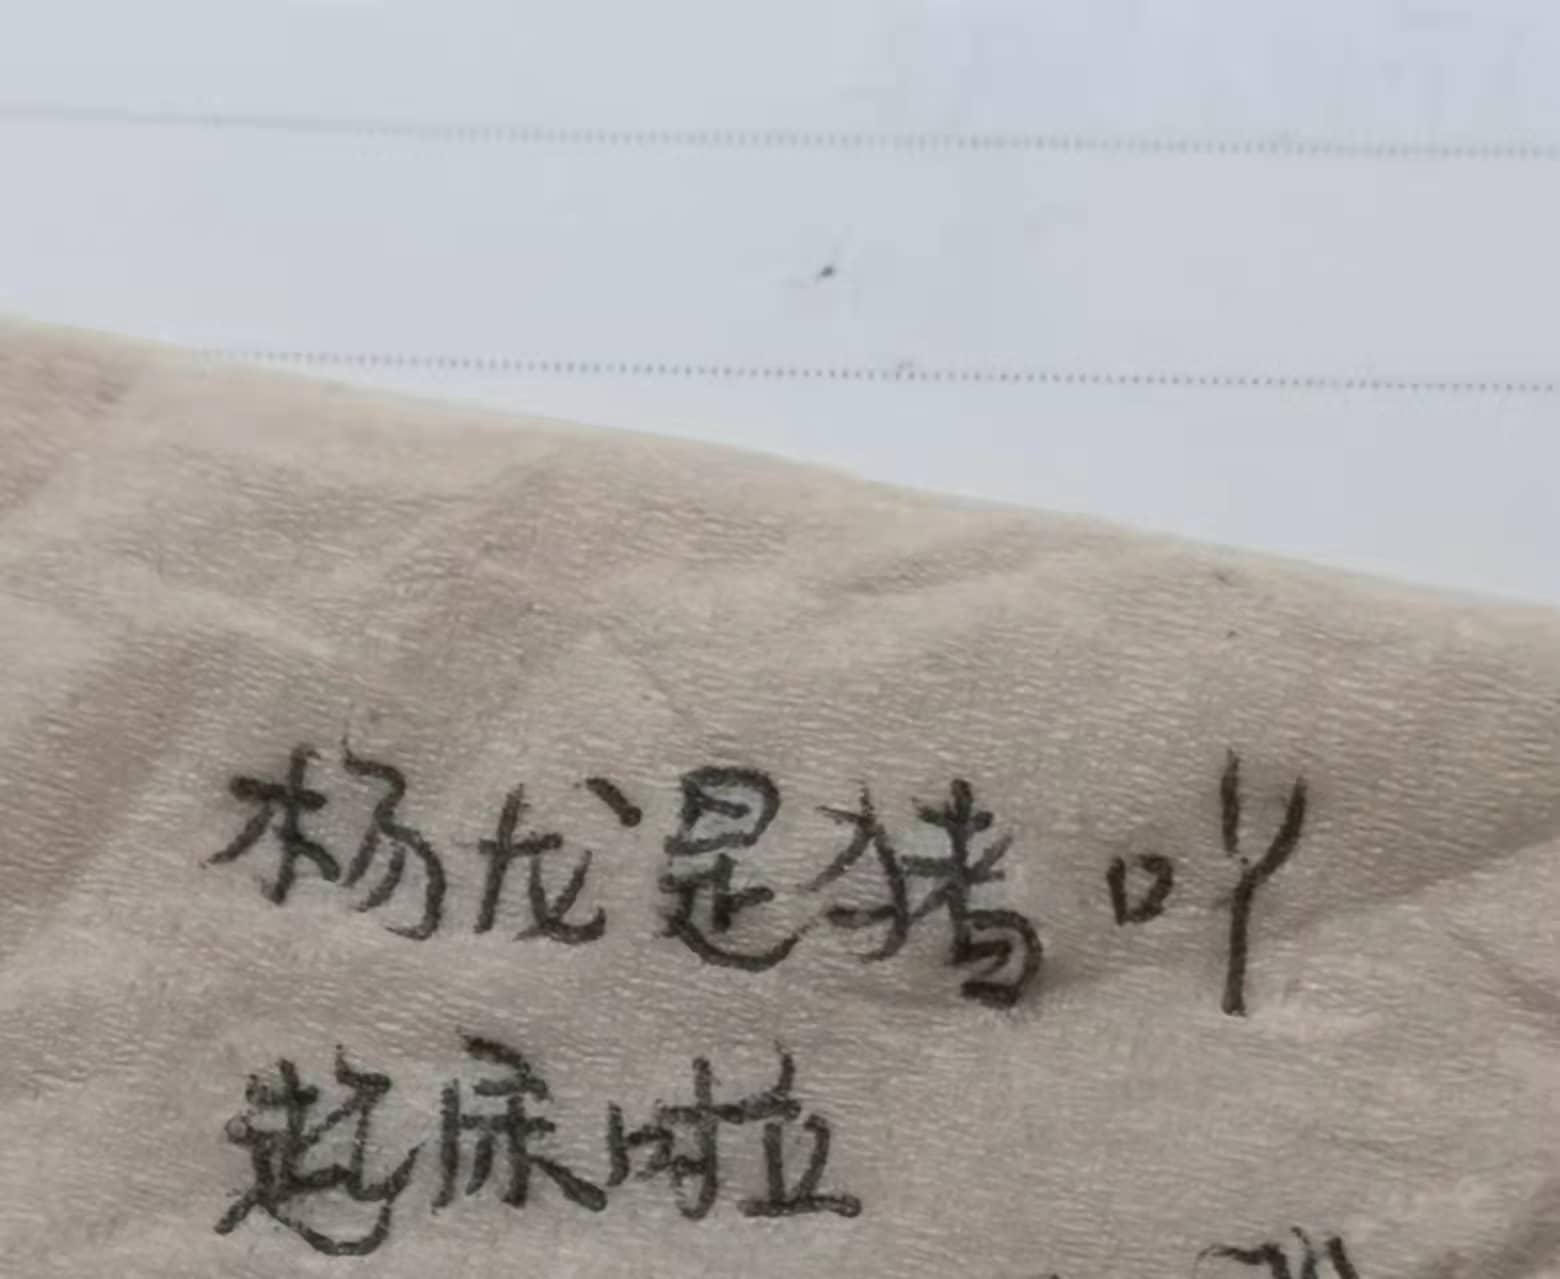 杨龙是猪吖
起床啦